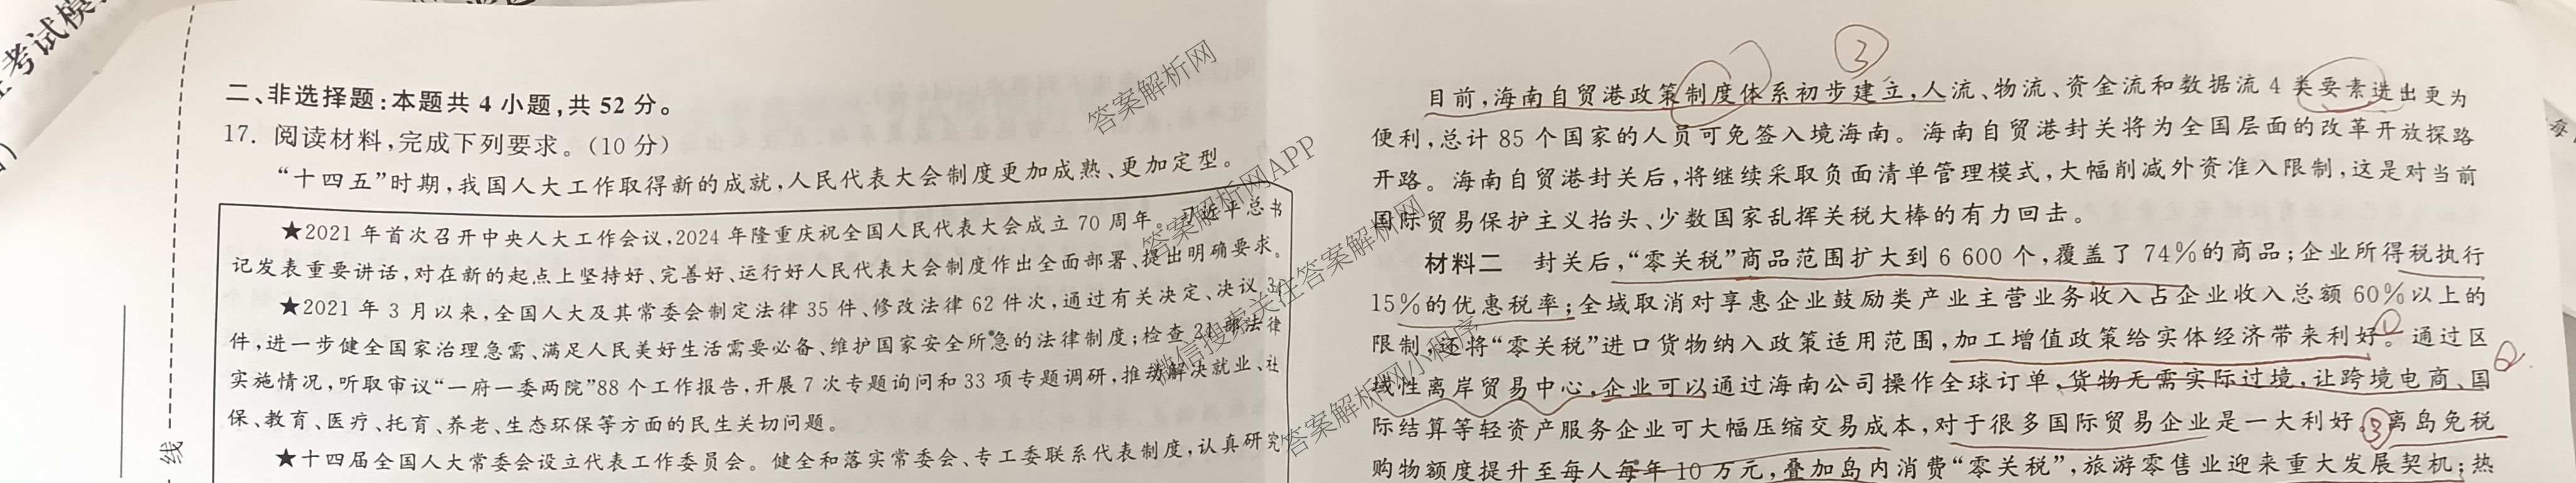 考试模
二、非选择题:本题共 4 小题,共 52 分。
17. 阅读材料,完成下列要求。(10 分)
“十四五”时期,我国人大工作取得新的成就,人民代表大会制度更加成熟、更加定型。
★2021 年首次召开中央人大工作会议,2024 年隆重庆祝全国人民代表大会成立 70 周年。习近平总书
记发表重要讲话,对在新的起点上坚持好、完善好、运行好人民代表大会制度作出全面部署、提出明确要求。
★2021 年 3 月以来,全国人大及其常委会制定法律 35 件、修改法律 62 件次,通过有关决定、决议
件,进一步健全国家治理急需、满足人民美好生活需要必备、维护国家安全所急的法律制度;检查 21 部法律
实施情况,听取审议“一府一委两院”88 个工作报告,开展 7 次专题询问和 33 项专题调研,推动解决就业、社
保、教育、医疗、托育、养老、生态环保等方面的民生关切问题。
★十四届全国人大常委会设立代表工作委员会。健全和落实常委会、专工委联系代表制度,认真研究
线
③
目前,海南自贸港政策制度体系初步建立,人流、物流、资金流和数据流 4 类要素进出更为
便利,总计 85 个国家的人员可免签入境海南。海南自贸港封关将为全国层面的改革开放探路
开路。海南自贸港封关后,将继续采取负面清单管理模式,大幅削减外资准入限制,这是对当前
国际贸易保护主义抬头、少数国家乱挥关税大棒的有力回击。
材料二 封关后,“零关税”商品范围扩大到 6 600 个,覆盖了 74%的商品;企业所得税执行
15%的优惠税率;全域取消对享惠企业鼓励类产业主营业务收入占企业收入总额 60%以上的
限制,还将“零关税”进口货物纳入政策适用范围,加工增值政策给实体经济带来利好。①通过区
域性离岸贸易中心,企业可以通过海南公司操作全球订单,货物无需实际过境,让跨境电商、国②
际结算等轻资产服务企业可大幅压缩交易成本,对于很多国际贸易企业是一大利好。③离岛免税
购物额度提升至每人每年 10 万元,叠加岛内消费“零关税”,旅游零售业迎来重大发展契机;热
答案解析网
答案解析网APP
微信搜索关注答案解析网
答案解析网小程序